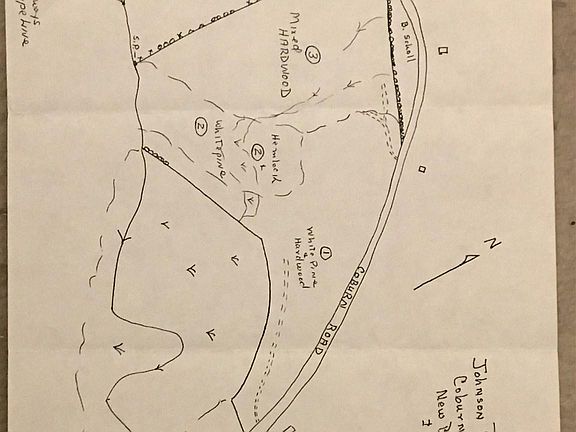 B. Scholl
③
Mixed
HARDWOOD
S.P.
②
White Pine
②
Hemlock
①
White Pine
&
Hardwood
COBURN ROAD
N
Johnson
Coburn
New